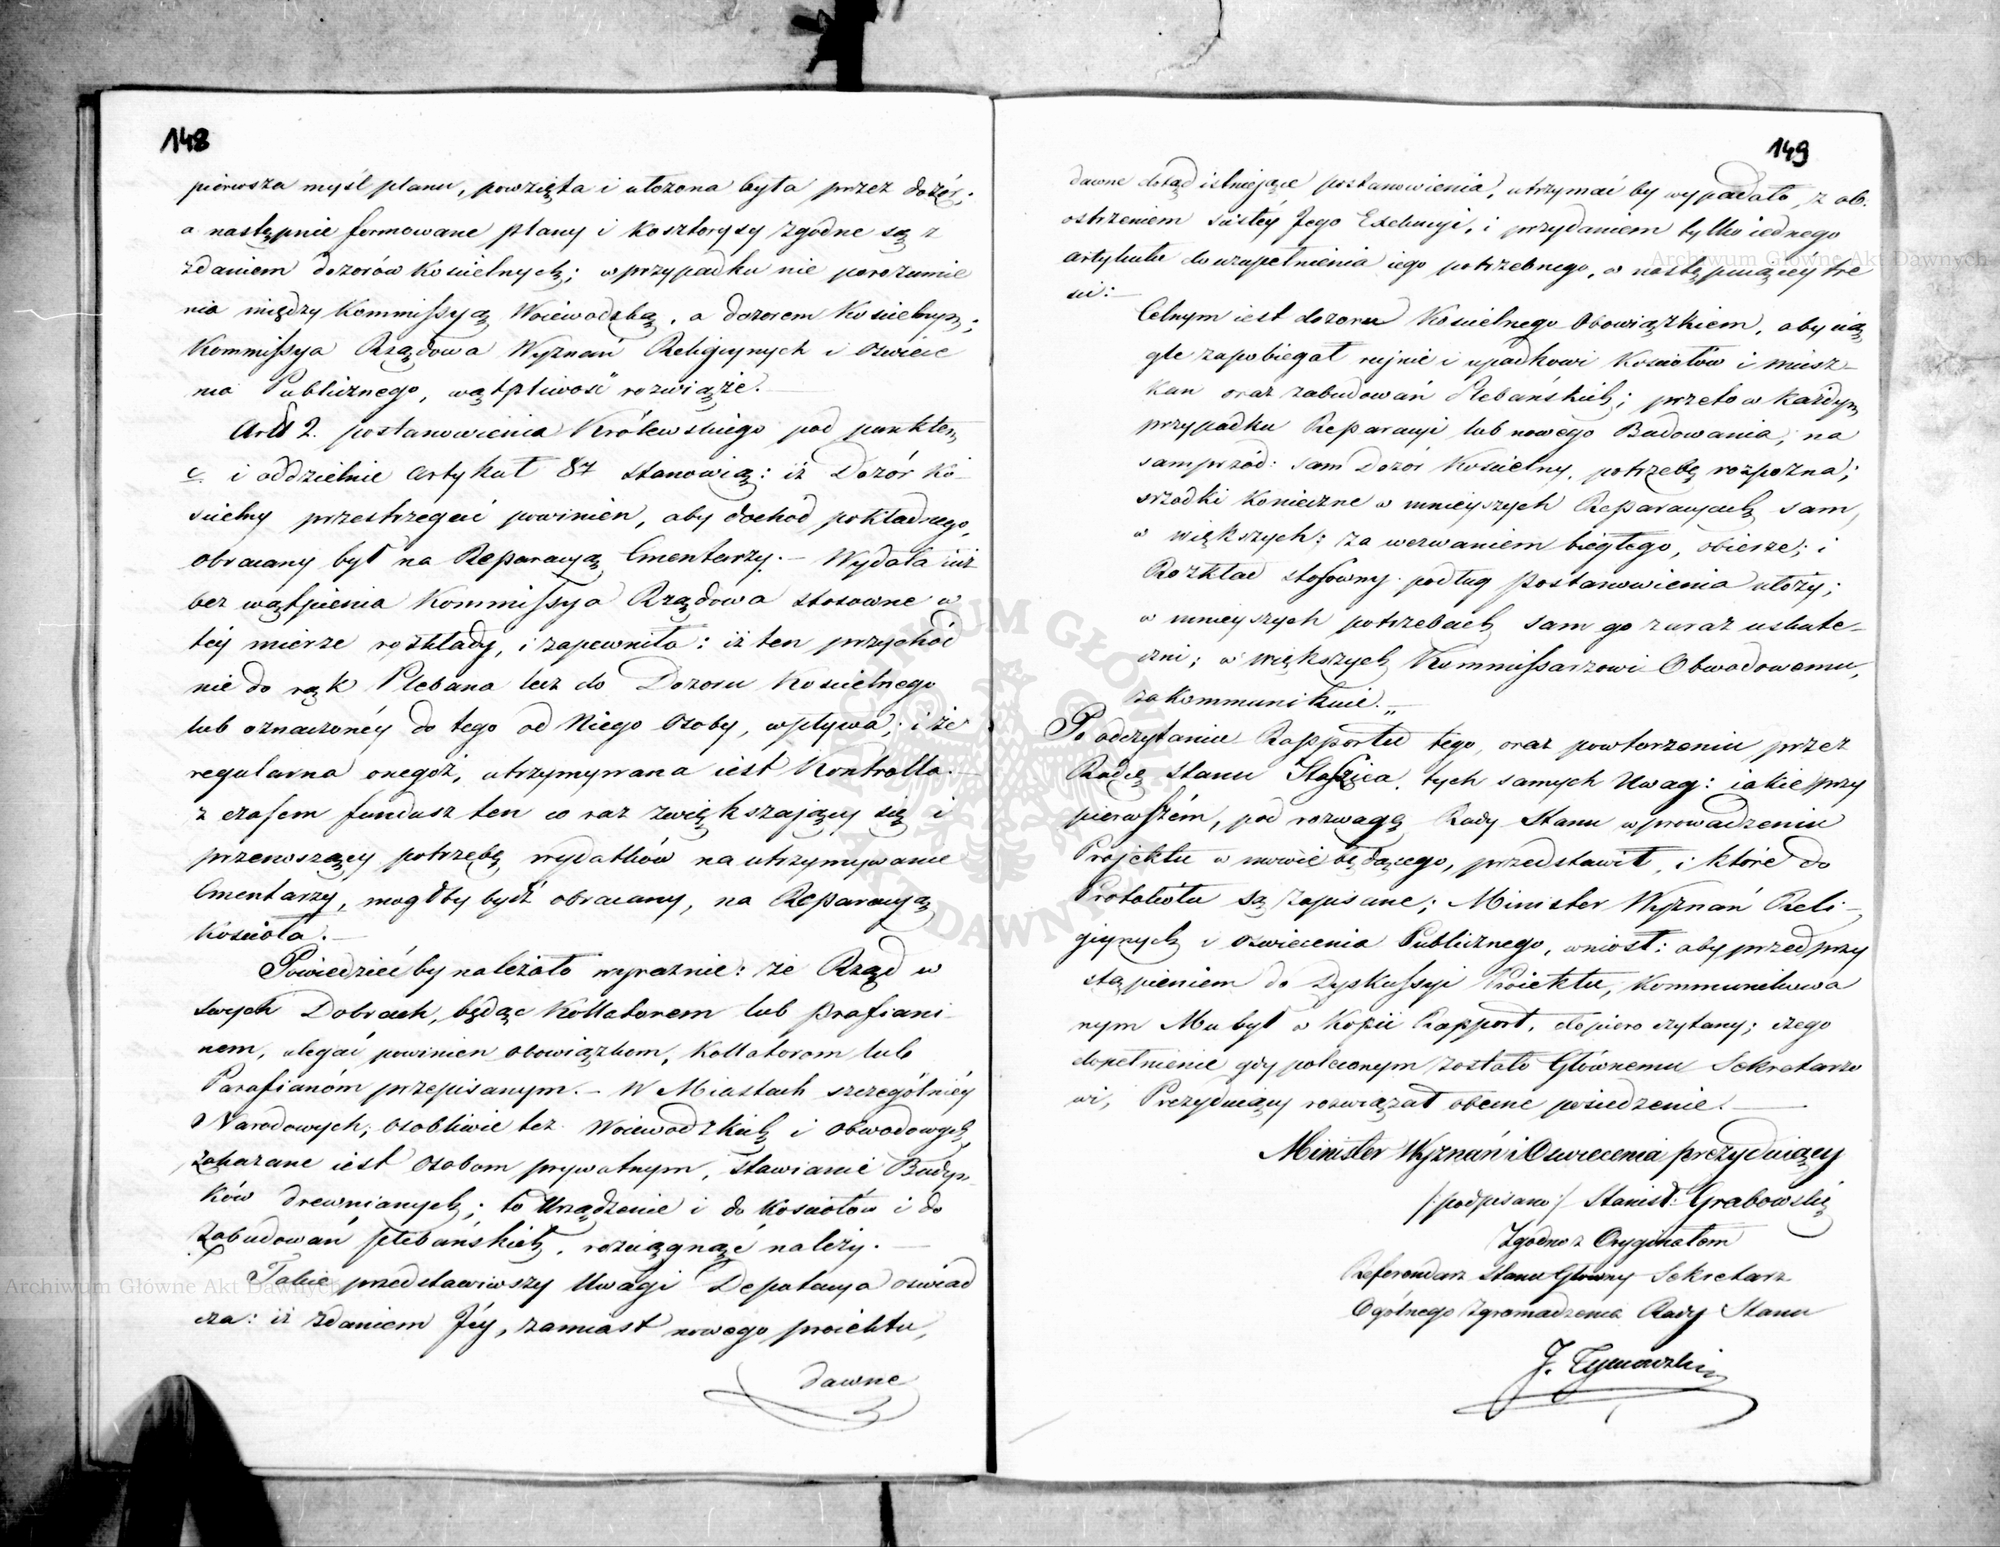 148
pierwsza myśl planu, powzięta i ułożona była przez dozór;
a następnie formowane plany i kosztorysy zgodne są z
zdaniem dozorów kościelnych; w przypadku nie porozumie
nia między Kommissyą Woiewodzką, a dozorem kościelnym;
Kommissya Rządowa Wyznań Religiynych i Oswiece
nia Publicznego, wątpliwość rozwiąże.—
Artł 2. postanowienia Królewskiego pod punktem
c. i oddzielnie artykuł 87 stanowią: iż Dozór Ko-
scielny przestrzegać powinien, aby dochód pokładnego,
obracany był na Reparacyą Cmentarzy.— Wydała iuż
bez wątpienia Kommissya Rządowa stosowne w
téy mierze rozkłady, i zapewniła: iż ten przychód
nie do rąk Plebana lecz do Dozoru Kościelnego
lub oznaczonéy do tego od Niego Osoby, wpływa; i że
regularna onegoż, utrzymywana iest Kontrolla.—
z czasem fundusz ten co raz zwiększający się i
przenoszący potrzebę, wydatków na utrzymywanie
Cmentarzy, mogłby bydź obracany, na Reparacyą
Kościoła.—
Powiedzieć by należało wyraznie: że Rząd w
swych Dobrach, będąc Kollatorem lub Prafiani-
nem, ulegać powinien obowiązkom, Kollatorom lub
Parafianóm przepisanym.— W Miastach szczególniéy
Narodowych, osobliwie też Woiewodzkich i Obwodowych,
zakazane iest osobom prywatnym, stawianie Budyn
ków drewnianych; to Urządzenie i do Kościołów i do
Zabudowań plebańskich, rozciągnąć należy.—
Takie przedstawiwszy Uwagi Deputacya oświad
cza: iż zdaniem Jéy, zamiast nowego proiektu,
dawne
149
dawne dotąd istniejące postanowienia, utrzymać by wypadało, z ob.
ostrzeniem ścisłéy Jego Exekucyi, i przydaniem tylko iednego
artykułu do uzupełnienia iego potrzebnego, w następuiącey tre
ści:—
Celnym iest dozoru Kościelnego Obowiązkiem, aby cią
gle zapobiegał rujnie i upadkowi Kościołów i miesz-
kan oraz zabudowań Plebańskich; przeto w każdym
przypadku Reparacyi lub nowego Budowania, na
samprzód: sam Dozór Kościelny, potrzebę rozpozna;
srzodki konieczne w mnieyszych Reparacyach sam,
w większych: za wezwaniem biegłego, obierze; i
Rozkład stosowny podług postanowienia ułoży;
w mnieyszych potrzebach sam go zaraz uskute-
czni; w większych Kommissarzowi Obwodowemu,
zakommunikuie."—
Po odczytaniu Rapportu tego, oraz powtorzeniu przez
Radcę Stanu Staszica, tych samych Uwag: iakie przy
pierwszém, pod rozwagę Rady Stanu wprowadzeniu
Projektu w mowie będącego, przedstawił, i które do
Protokółu są zapisane; Minister Wyznań Reli-
giynych i Oswiecenia Publicznego, wniosł: aby przed przy
stąpieniem do Dyskussyi Proiektu, kommunikowa
nym Mu był w Kopii Rapport, dopiero czytany; czego
dopełnienie gdy poleconym zostało Głównemu Sekretarzo
wi, Prezyduiący rozwiązał obecne posiedzenie.—
Minister Wyznań i Oswiecenia prezyduiący
/:podpisano:/ Stanisł: Grabowski
Zgodno z Oryginałem
Referendarz Stanu Główny Sekretarz
Ogólnego Zgromadzenia Rady Stanu
J. Tymowski
Archiwum Główne Akt Dawnych
Archiwum Główne Akt Dawnych
ARCHIWUM GŁÓWNE AKT DAWNYCH